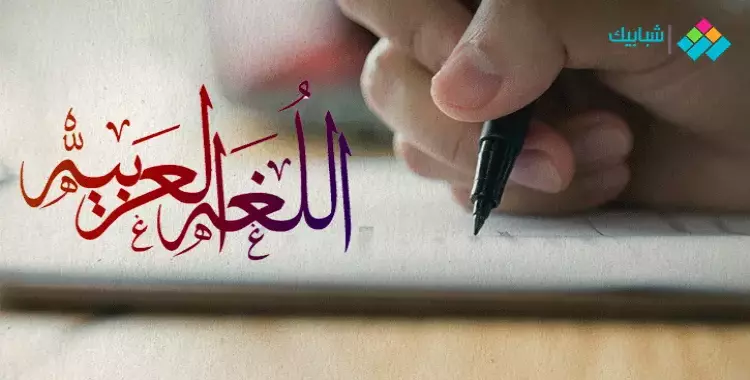 شبابيك
اللُغة العربية